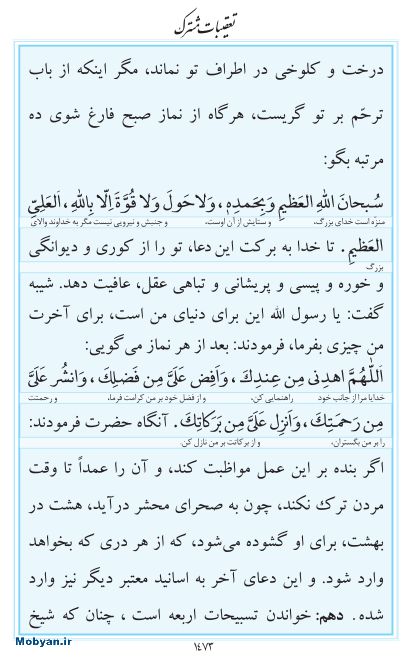 تعقیبات مشترک
درخت و کلوخی در اطراف تو نماند، مگر اینکه از باب
ترحّم بر تو گریست، هرگاه از نماز صبح فارغ شوی ده
مرتبه بگو:
سُبحانَ اللهِ العَظیمِ وَبِحَمدِهِ، وَلا حَولَ وَلا قُوَّةَ اِلّا بِاللهِ، اَلعَلِیِّ
منزّه است خدای بزرگ، و ستایش از آن اوست، و جنبش و نیرویی نیست مگر به خداوند والای
العَظیمِ. تا خدا به برکت این دعا، تو را از کوری و دیوانگی
بزرگ
و خوره و پیسی و پریشانی و تباهی عقل، عافیت دهد. شیبه
گفت: یا رسول الله این برای دنیای من است، برای آخرت
من چیزی بفرما، فرمودند: بعد از هر نماز می‌گویی:
اَللّهُمَّ اهدِنی مِن عِندِكَ، وَاَفِض عَلَیَّ مِن فَضلِكَ، وَانشُر عَلَیَّ
خدایا مرا از جانب خود راهنمایی کن، و از فضل خود بر من کرامت فرما، و رحمتت
مِن رَحمَتِكَ، وَاَنزِل عَلَیَّ مِن بَرَکاتِكَ. آنگاه حضرت فرمودند:
را بر من بگستران، و از برکاتت بر من نازل کن.
اگر بنده بر این عمل مواظبت کند، و آن را عمداً تا وقت
مردن ترك نکند، چون به صحرای محشر درآید، هشت در
بهشت، برای او گشوده می‌شود، که از هر دری که بخواهد
وارد شود. و این دعای آخر به اسانید معتبر دیگر نیز وارد
شده. دهم: خواندن تسبیحات اربعه است، چنان که شیخ
۱٤۷۳
Mobyan.ir